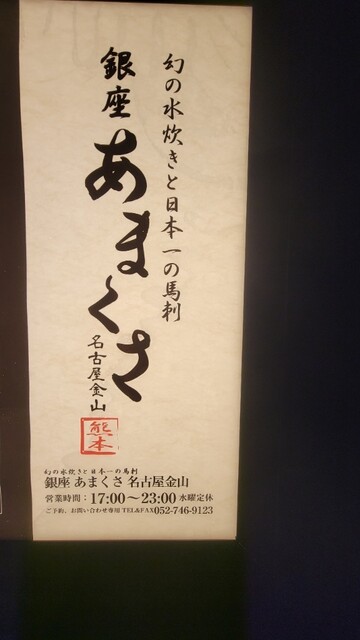 幻の水炊きと日本一の馬刺
銀座
あまくさ
名古屋金山
熊本
幻の水炊きと日本一の馬刺
銀座 あまくさ 名古屋金山
営業時間：17:00～23:00 水曜定休
ご予約、お問い合わせ専用 TEL&FAX052-746-9123